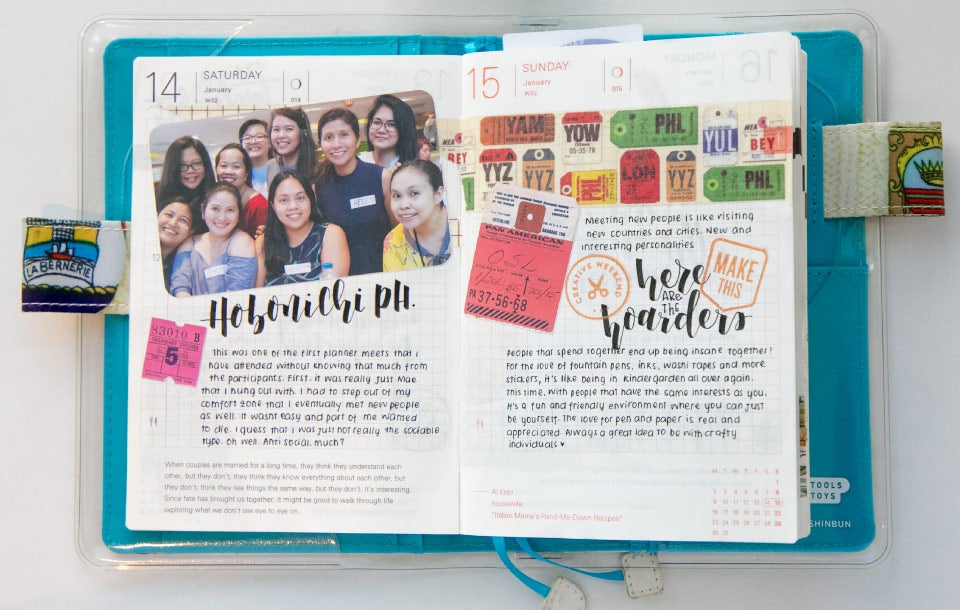 14
SATURDAY
January
W02
014
HELLO
Hobonichi PH.
83010 B
5
This was one of the first planner meets that I
have attended without knowing that much from
the participants. First, it was really just Mae
that I hung out with. I had to step out of my
comfort zone that I eventually met new people
as well. It wasnt easy and part of me wanted
to die. I guess that I was just not really the sociable
type. Oh well. Anti social, much?
When couples are married for a long time, they think they understand each
other, but they don't; they think they know everything about each other, but
they don't; think they see things the same way, but they don't. It's interesting.
Since fate has brought us together, it might be good to walk through life
exploring what we don't see eye to eye on.
LA BERNERIE
15
SUNDAY
January
W02
015
MONDAY
16
YAM
YOW
Ottawa
05-35-78
PHL
YUL
MEA
BEY
BEY
YYZ
YYZ
PHL
LON
YYZ
PHL
PAN AMERICAN
OSL
PA 37-56-68
Meeting new people is like visiting
new countries and cities. New and
interesting personalities
CREATIVE WEEKEND
MAKE
THIS
here
ARE
THE
hoarders
People that spend together end up being insane together!
For the love of fountain pens, inks, washi tapes and more
stickers, it's like being in kindergarden all over again.
This time, with people that have the same interests as you.
It's a fun and friendly environment where you can just
be yourself. The love for pen and paper is real and
appreciated. Always a great idea to be with crafty
individuals ♥
Ai Kido
housewife
"Italian Mama's Hand-Me-Down Recipes"
M T W T F S S
1
2 3 4 5 6 7 8
9 10 11 12 13 14 15
16 17 18 19 20 21 22
23 24 25 26 27 28 29
30 31
TOOLS
TOYS
SHINBUN